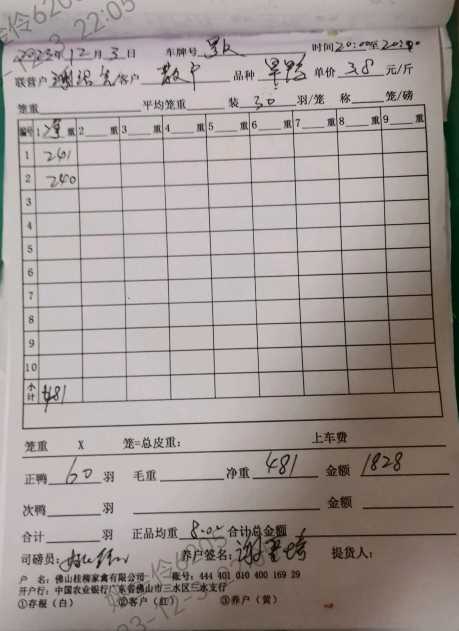 2023年12月3日 车牌号 时间20:00至20:
联营户 客户 散户 品种 旱鸭 单价 3.8 元/斤
笼重 平均笼重 装 30 羽/笼 称 笼/磅
编号 1 净 重 2 重 3 重 4 重 5 重 6 重 7 重 8 重 9 重
1 241
2 240
3
4
5
6
7
8
9
10
小计 481
笼重 X 笼=总皮重: 上车费
正鸭 60 羽 毛重 净重 481 金额 1828
次鸭 羽 金额
合计 羽 正品均重 8.02 合计总金额
司磅员: 养户签名: 提货人:
户 名: 佛山桂柳家禽有限公司 账号: 444 401 010 400 169 29
开户行: 中国农业银行广东省佛山市三水区三水支行
①存根(白) ②客户(红) ③养户(黄)